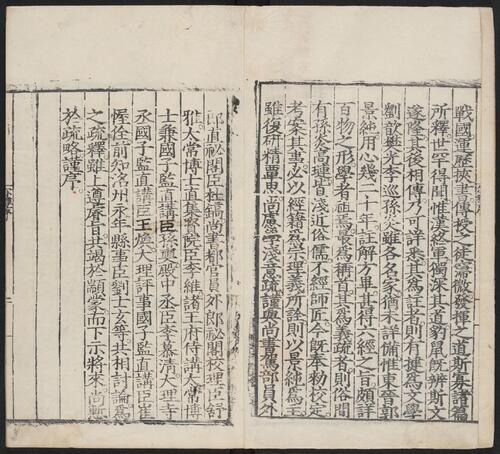 戰國運歷挾書傳授之徒寖微發揮之道斯寡諸篇
所釋世罕得聞惟漢終軍獨深其道豹鼠既辨斯文
遂隆其後相傳乃可詳悉其為註者則有犍為文學
劉歆樊光李巡孫炎雖各名家猶未詳備惟東晉郭
景純用心幾二十年註解方畢甚得六經之旨頗詳
百物之形學者祖焉最為稱首其為義疏者則俗間
有孫炎高璉皆淺近俗儒不經師匠今既奉勑校定
考案其事必以經籍為宗理義所詮則以景純為主
雖復研精覃思尚慮學淺意疏謹與尚書駕部員外
郎直祕閣臣杜鎬尚書都官員外郎祕閣校理臣舒
雅太常博士直集賢院臣李維諸王府侍講太常博
士兼國子監直講臣孫奭殿中丞臣李慕清大理寺
丞國子監直講臣王煥大理評事國子監直講臣崔
偓佺前知洺州永年縣事臣劉士玄等共相討論為
之疏釋雖上遵睿旨共竭於顓蒙而下示將來尚慙
於疏略謹序